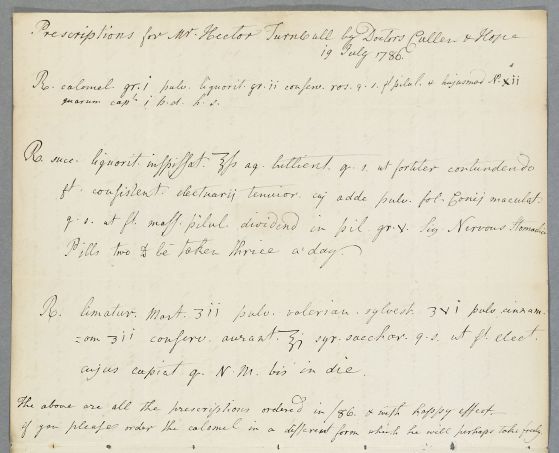 Prescriptions for Mr. Hector Turnbull by Doctors Cullen & Hope
19 July 1786.
R. calomel gr. i pulv. liquorit. gr. ii conserv. ros. q. s. ft pilul. & hujusmod No. xii
quarum capt. i p. d. h. s.
R. succ. liquorit inspissat. ℥ſs aq. bullient. q. s. ut fortiter contundendo
ft. consistent. electuarij tenuior. cij adde pulv. fol. Conij maculat.
q. s. ut ft. mass. pilul. dividend in pil. gr. v. Sig. Nervous Stomachic
Pills two to be taken thrice a day.
R. limatur. Mart. ʒii pulv. valerian. sylvest. ʒvi pulv cinnam
=om ʒii conserv. aurant. ℥j syr. sacchar. q. s. ut ft. elect.
cujus capiat q. N. M. bis in die.
The above are all the prescriptions ordered in /86. & with happy effect.
if you please order the calomel in a different form which he will perhaps take freely.